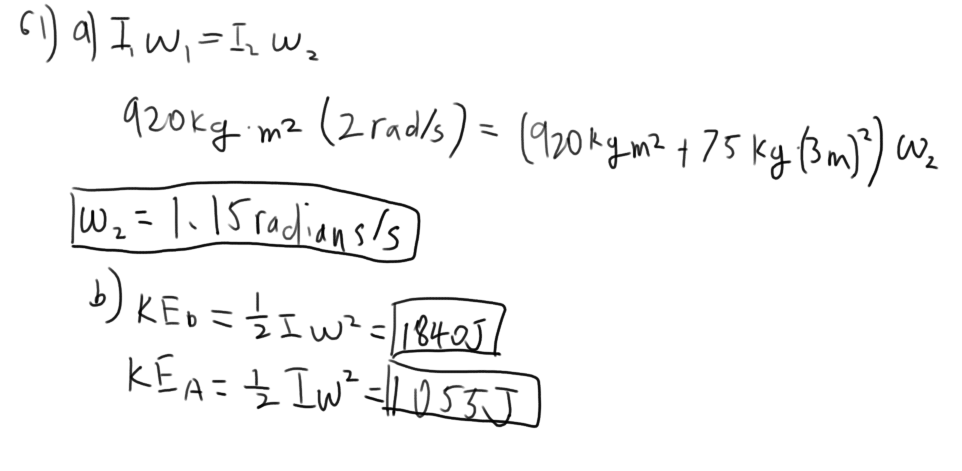 61) a) I₁ω₁ = I₂ω₂
920kg·m² (2 rad/s) = (920kgm² + 75 kg·(3m)²) ω₂
ω₂ = 1.15 radians/s
b) KE_b = ½ Iω² = 1840J
KE_A = ½ Iω² = 1055J